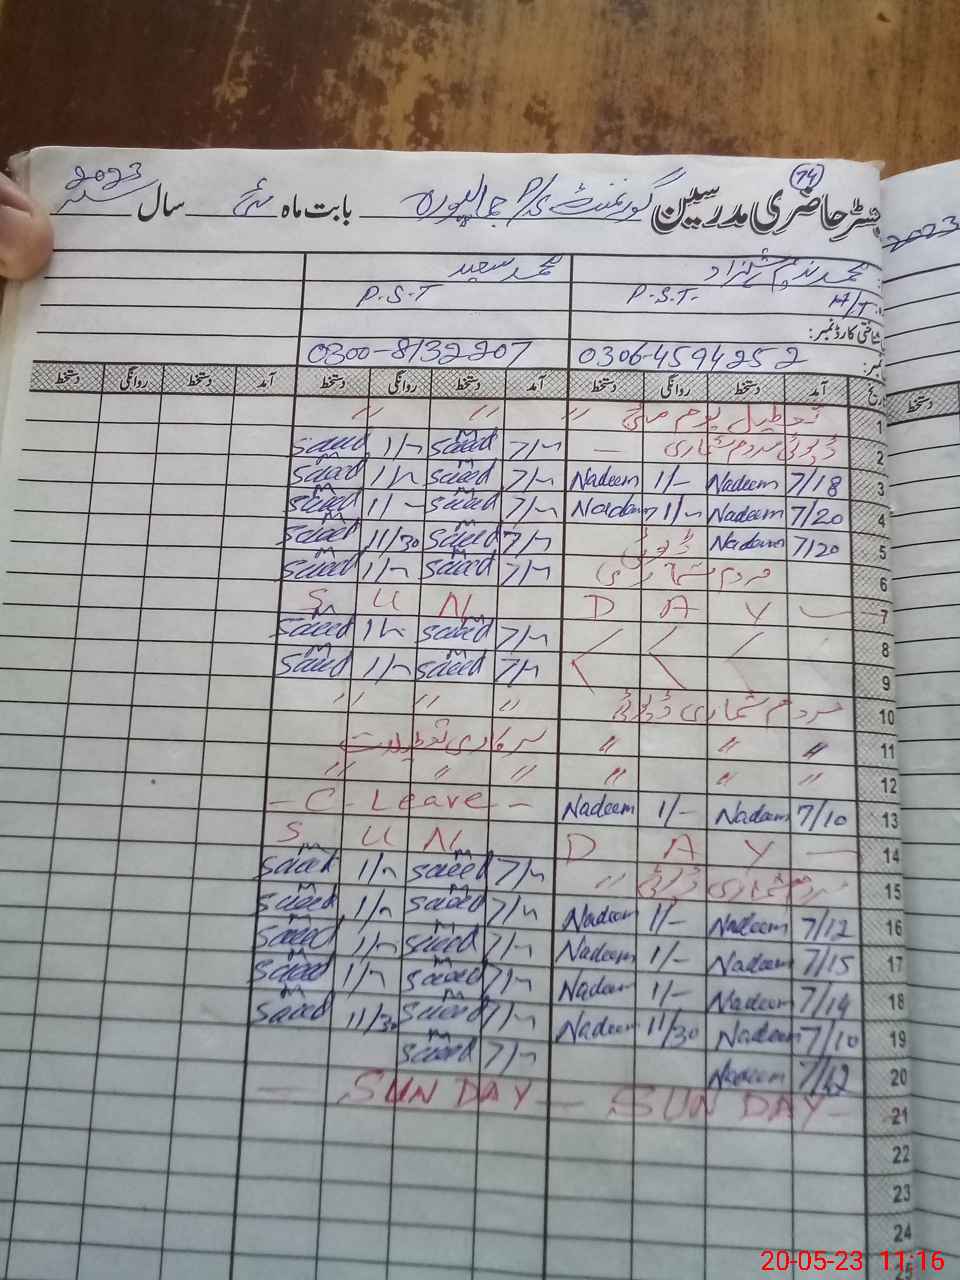 74
رجسٹر حاضری مدرسین گورنمنٹ P/S جمالپورہ بابت ماہ مئی سال 2023
2023
محمد ندیم شہزاد محمد سعید
H/T P.S.T. P.S.T
شناختی کارڈ نمبر:
0306-4594252 0300-8132207
تاریخ آمد دستخط روانگی دستخط آمد دستخط روانگی دستخط آمد دستخط روانگی دستخط
دستخط
1 تعطیل یوم مئی " " "
2 ڈیوٹی مردم شماری — 7/ Saeed 1/ Saeed
3 7/18 Nadeem 1/- Nadeem 7/ Saeed 1/ Saeed
4 7/20 Nadeem 1/ Nadeem 7/ Saeed 1/- Saeed
5 7/20 Nadeem ڈیوٹی 7/ Saeed 11/30 Saeed
6 مردم شماری 7/ Saeed 1/ Saeed
7 S U N D A Y —
8 7/ Saeed 1/ Saeed
9 7/ Saeed 1/ Saeed
10 مردم شماری ڈیوٹی " " "
11 " " " سرکاری تعطیلات
12 " " " " " "
13 7/10 Nadeem 1/- Nadeem - C - Leave -
14 S U N D A Y —
15 مردم شماری ڈیوٹی " 7/ Saeed 1/ Saeed
16 7/12 Nadeem 1/- Nadeem 7/ Saeed 1/ Saeed
17 7/15 Nadeem 1/- Nadeem 7/ Saeed 1/ Saeed
18 7/14 Nadeem 1/- Nadeem 7/ Saeed 1/ Saeed
19 7/10 Nadeem 11/30 Nadeem 7/ Saeed 11/30 Saeed
20 7/12 Nadeem 7/ Saeed
21 — SUN DAY — SUN DAY —
22
23
24
25
20-05-23 11:16